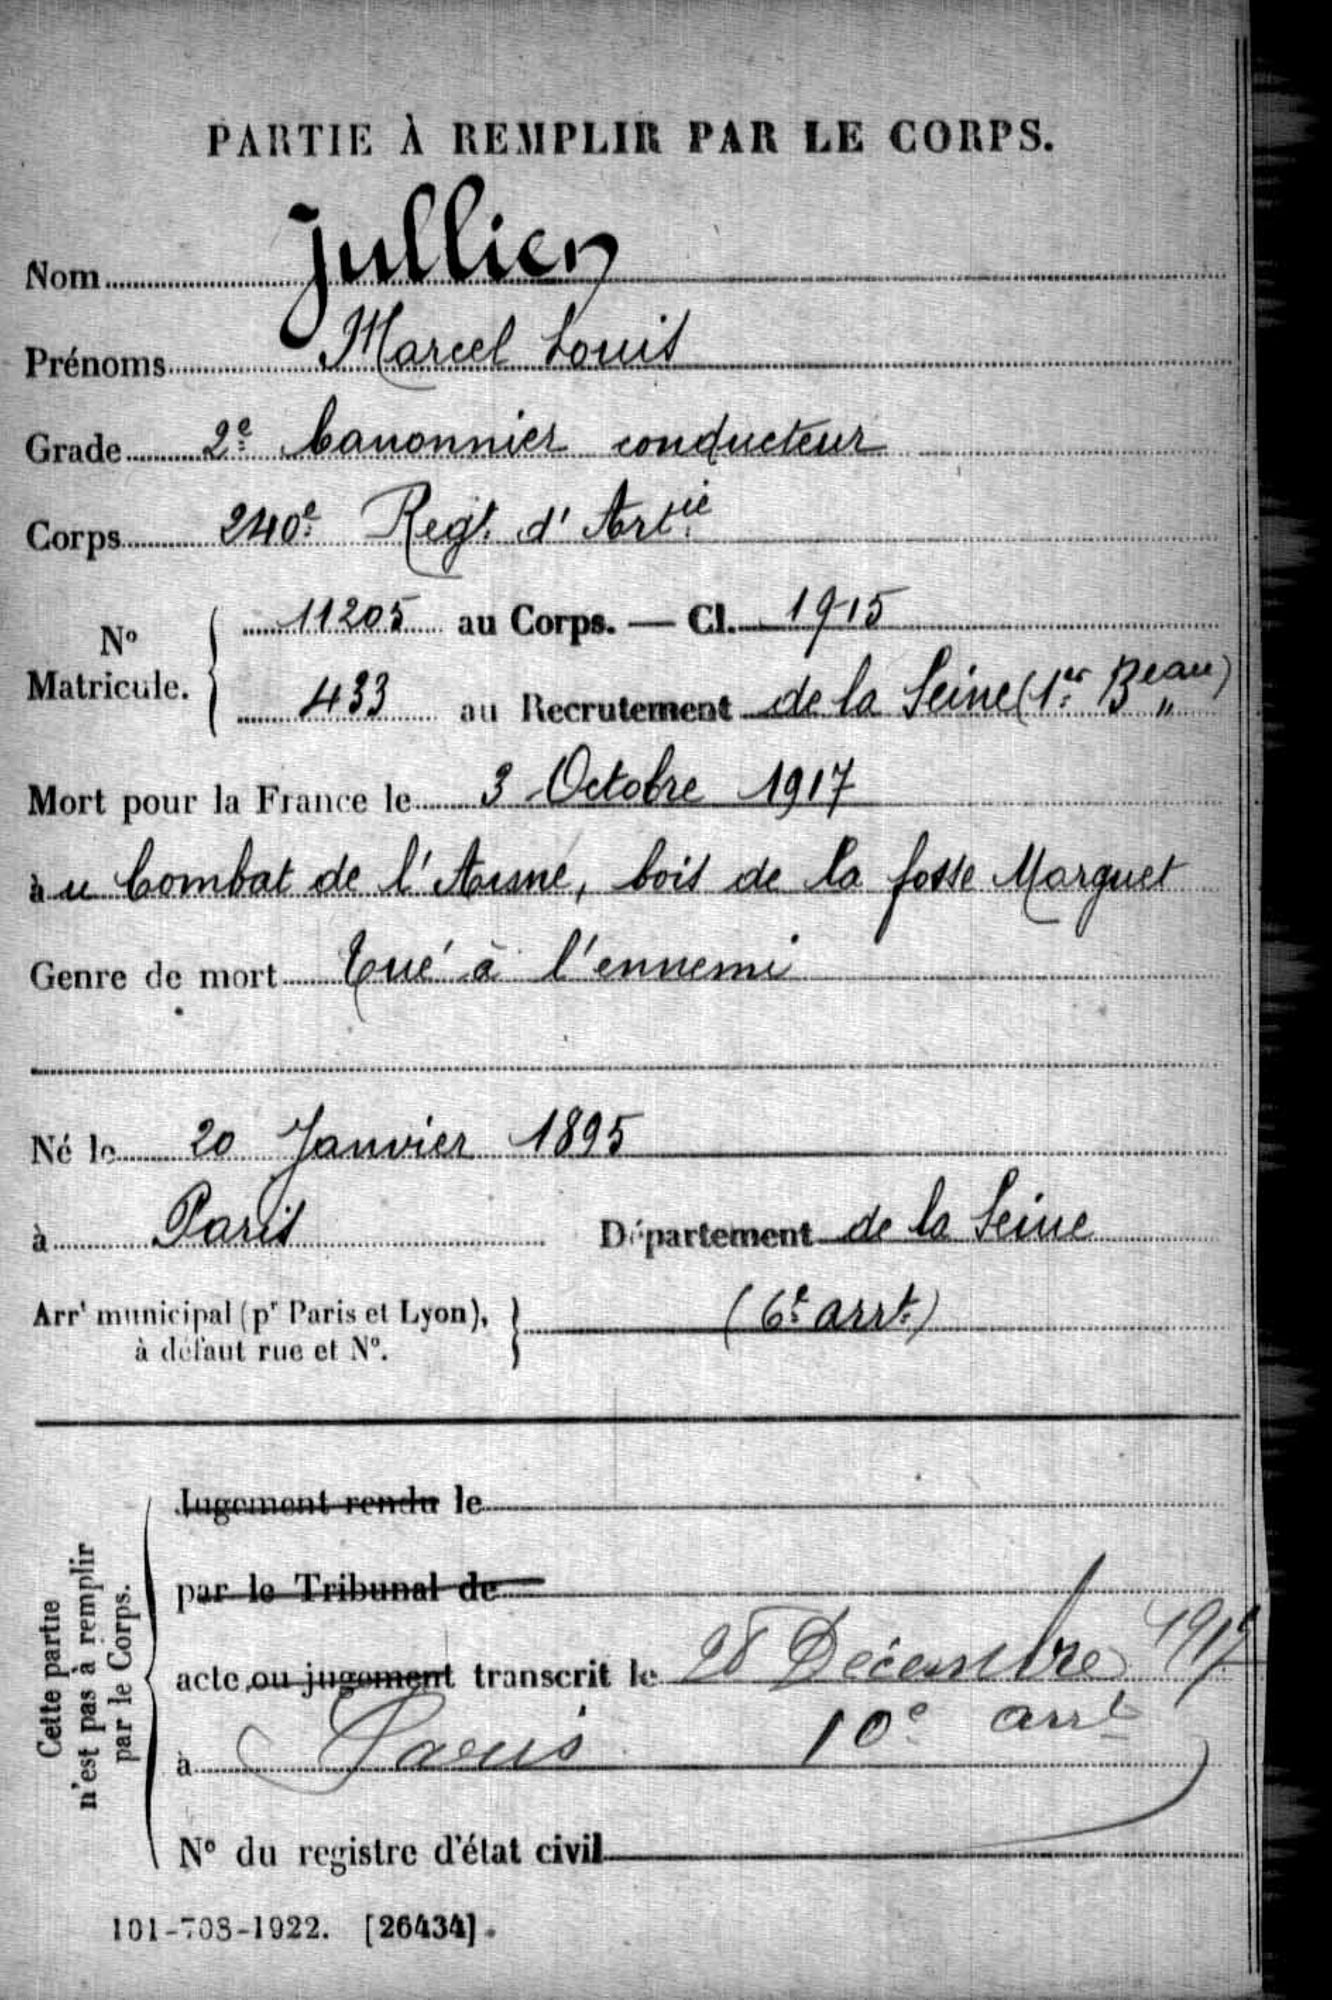 PARTIE À REMPLIR PAR LE CORPS.
Nom Jullien
Prénoms Marcel Louis
Grade 2e Canonnier conducteur
Corps 240e Regt. d'Artie
No Matricule. 11205 au Corps. — Cl. 1915
433 au Recrutement de la Seine (1er Beau)
Mort pour la France le 3 Octobre 1917
à u Combat de l'Aisne, bois de la fosse Marguet
Genre de mort Tué à l'ennemi
Né le 20 Janvier 1895
à Paris Département de la Seine
Arrt municipal (pr Paris et Lyon), (6e arrt.)
à défaut rue et No.
Cette partie
n'est pas à remplir
par le Corps.
Jugement rendu le
par le Tribunal de
acte ou jugement transcrit le 28 Décembre 1917
à Paris 10e arrt
No du registre d'état civil
101-708-1922. [26434].